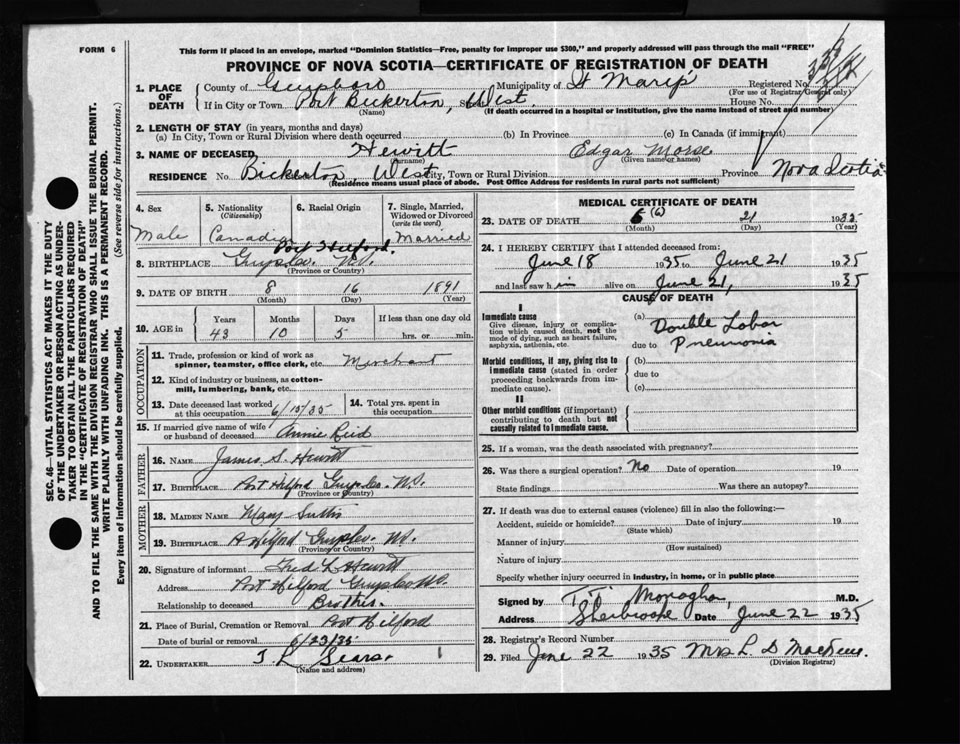 FORM 6
This form if placed in an envelope, marked "Dominion Statistics—Free, penalty for improper use $300," and properly addressed will pass through the mail "FREE"
PROVINCE OF NOVA SCOTIA—CERTIFICATE OF REGISTRATION OF DEATH
1. PLACE OF DEATH
County of Guysboro Municipality of St Marys Registered No.
(For use of Registrar General only)
If in City or Town Port Bickerton, West. House No.
(Name) (If death occurred in a hospital or institution, give the name instead of street and number)
2. LENGTH OF STAY (in years, months and days)
(a) In City, Town or Rural Division where death occurred (b) In Province (c) In Canada (if immigrant)
3. NAME OF DECEASED Hewitt Edgar Morse
(Surname) (Given name or names)
RESIDENCE No. Bickerton, West City, Town or Rural Division Province Nova Scotia
(Residence means usual place of abode. Post Office Address for residents in rural parts not sufficient)
4. Sex
Male
5. Nationality
(Citizenship)
6. Racial Origin
7. Single, Married, Widowed or Divorced
(write the word)
Married
8. BIRTHPLACE Port Hilford, Guysboro. N.S.
(Province or Country)
9. DATE OF BIRTH 8 16 1891
(Month) (Day) (Year)
10. AGE in Years Months Days If less than one day old
43 10 5 hrs. or min.
OCCUPATION
11. Trade, profession or kind of work as spinner, teamster, office clerk, etc. Merchant
12. Kind of industry or business, as cotton-mill, lumbering, bank, etc.
13. Date deceased last worked at this occupation 6/15/35
14. Total yrs. spent in this occupation
15. If married give name of wife or husband of deceased Annie Reid
FATHER
16. NAME James S. Hewitt
17. BIRTHPLACE Port Hilford Guys Co. N.S.
(Province or Country)
MOTHER
18. MAIDEN NAME Mary Suttis
19. BIRTHPLACE P Hilford Guys Co. N.S.
(Province or Country)
20. Signature of informant Fred L Hewitt
Address Port Hilford Guys Co N.S.
Relationship to deceased Brother.
21. Place of Burial, Cremation or Removal Port Hilford
Date of burial or removal 6/23/35
22. UNDERTAKER J R Sears
(Name and address)
MEDICAL CERTIFICATE OF DEATH
23. DATE OF DEATH 6 (6) 21 1935
(Month) (Day) (Year)
24. I HEREBY CERTIFY that I attended deceased from:
June 18 1935 to June 21 1935
and last saw him alive on June 21, 1935
CAUSE OF DEATH
I
Immediate cause
Give disease, injury or complication which caused death, not the mode of dying, such as heart failure, asphyxia, asthenia, etc.
(a) Double Lobar
due to Pneumonia
Morbid conditions, if any, giving rise to immediate cause (stated in order proceeding backwards from immediate cause).
(b)
due to
(c)
II
Other morbid conditions (if important) contributing to death but not causally related to immediate cause.
25. If a woman, was the death associated with pregnancy?
26. Was there a surgical operation? No Date of operation 19
State findings Was there an autopsy?
27. If death was due to external causes (violence) fill in also the following:—
Accident, suicide or homicide? Date of injury 19
(State which)
Manner of injury
(How sustained)
Nature of injury
Specify whether injury occurred in industry, in home, or in public place
Signed by Monaghan, M.D.
Address Sherbrooke Date June 22 1935
28. Registrar's Record Number
29. Filed June 22 1935 Mrs L. D
(Division Registrar)
SEC. 46—VITAL STATISTICS ACT MAKES IT THE DUTY OF THE UNDERTAKER OR PERSON ACTING AS UNDERTAKER TO OBTAIN ALL THE PARTICULARS REQUIRED IN THE "CERTIFICATE OF REGISTRATION OF DEATH" AND TO FILE THE SAME WITH THE DIVISION REGISTRAR WHO SHALL ISSUE THE BURIAL PERMIT.
WRITE PLAINLY WITH UNFADING INK. THIS IS A PERMANENT RECORD.
Every item of information should be carefully supplied. (See reverse side for instructions.)